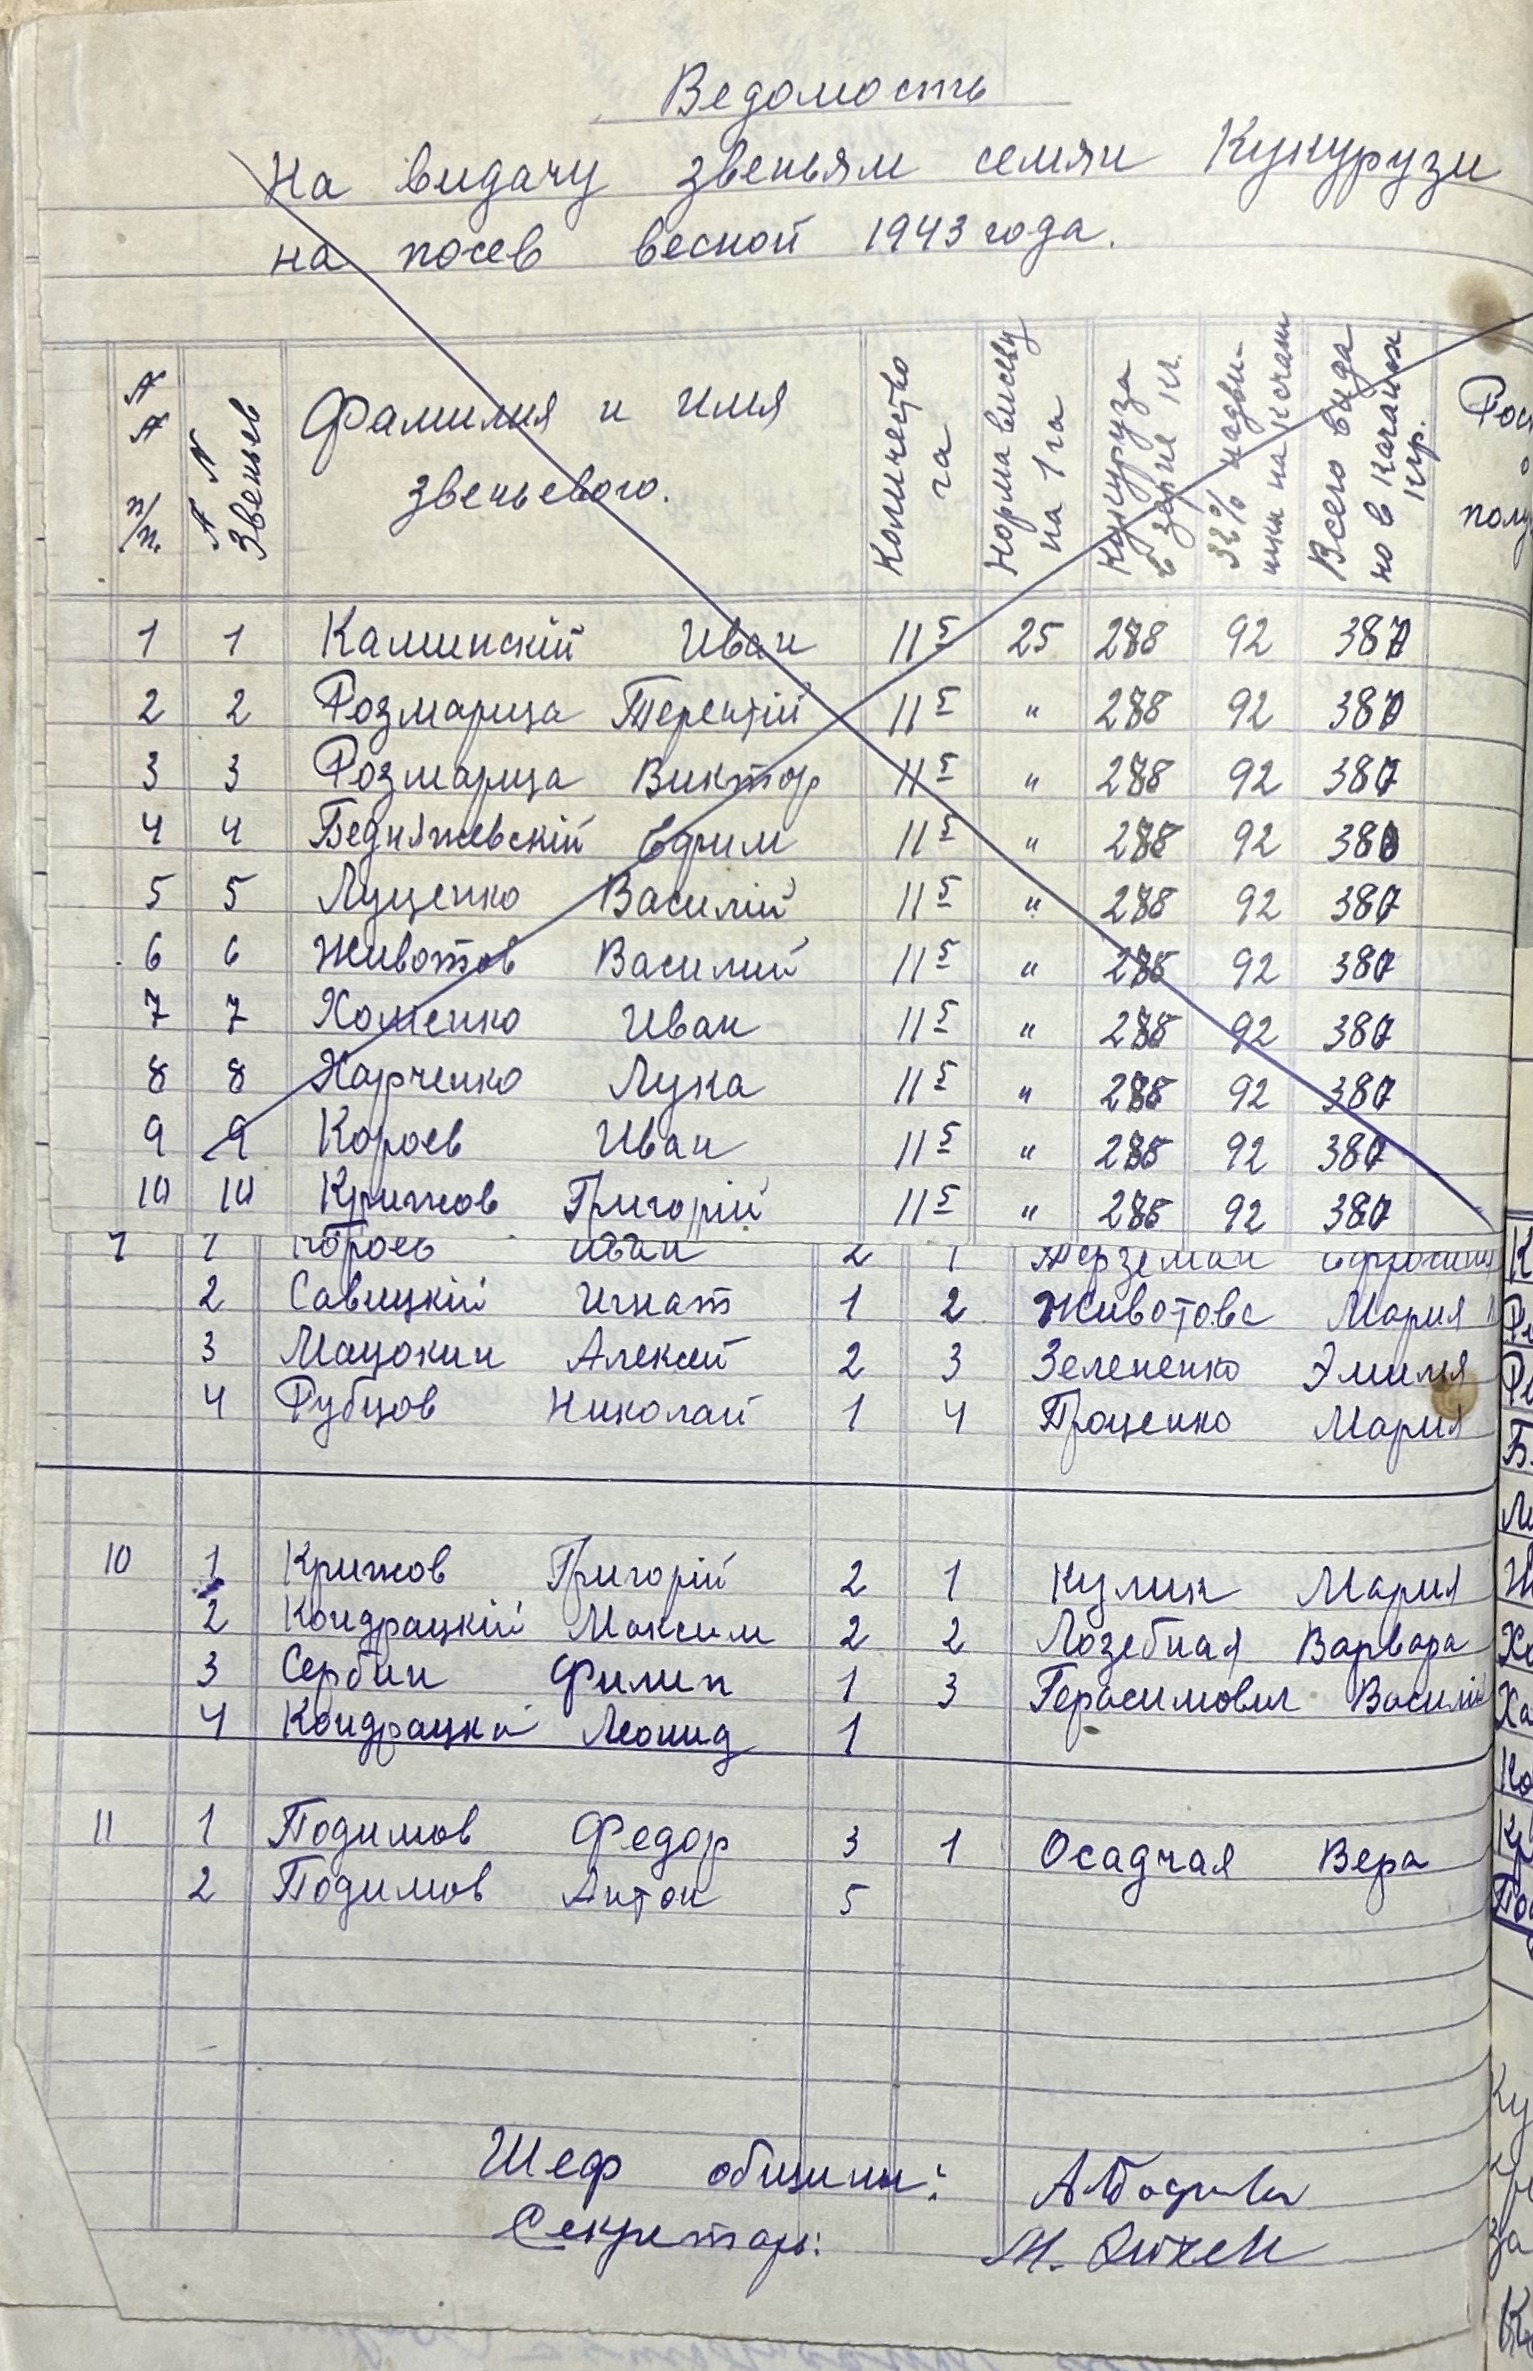 Ведомость
На видачу звеньям семян Кукурузи
на посев весной 1943 года.
№ № п/п. № № Звеньев Фамилия и имя звеньевого. Количество га Норма висеву на 1 га Кукуруза в зерне кг. 32% надви- Всего вида но в качанах кгр.
1 1 Каминскій Иван 11 5 25 288 92 380
2 2 Розмарица Терентій 11 5 " 288 92 380
3 3 Розмарица Виктор 11 5 " 288 92 380
4 4 Бедняжевскій Ефим 11 5 " 288 92 380
5 5 Луценко Василій 11 5 " 288 92 380
6 6 Животов Василий 11 5 " 288 92 380
7 7 Хоменко Иван 11 5 " 288 92 380
8 8 Харченко Лука 11 5 " 288 92 380
9 9 Короев Иван 11 5 " 288 92 380
10 10 Крижов Григорій 11 5 " 288 92 380
1 Короев Иван 2 1 Держеман
2 Савицкій Игнат 1 2 Животова Мария
3 Мацокин Алексей 2 3 Зелененко Эмилия
4 Рубцов Николай 1 4 Проценко Мария
10 1 Крижов Григорій 2 1 Кулик Мария
2 Кондрацкій Максим 2 2 Лозебная Варвара
3 Сербин Филип 1 3 Герасимовил Василій
4 Кондрацкій Леонид 1
11 1 Подимов Федор 3 1 Осадчая Вера
2 Подимов Антон 5
Шеф общини:
Секретарь: